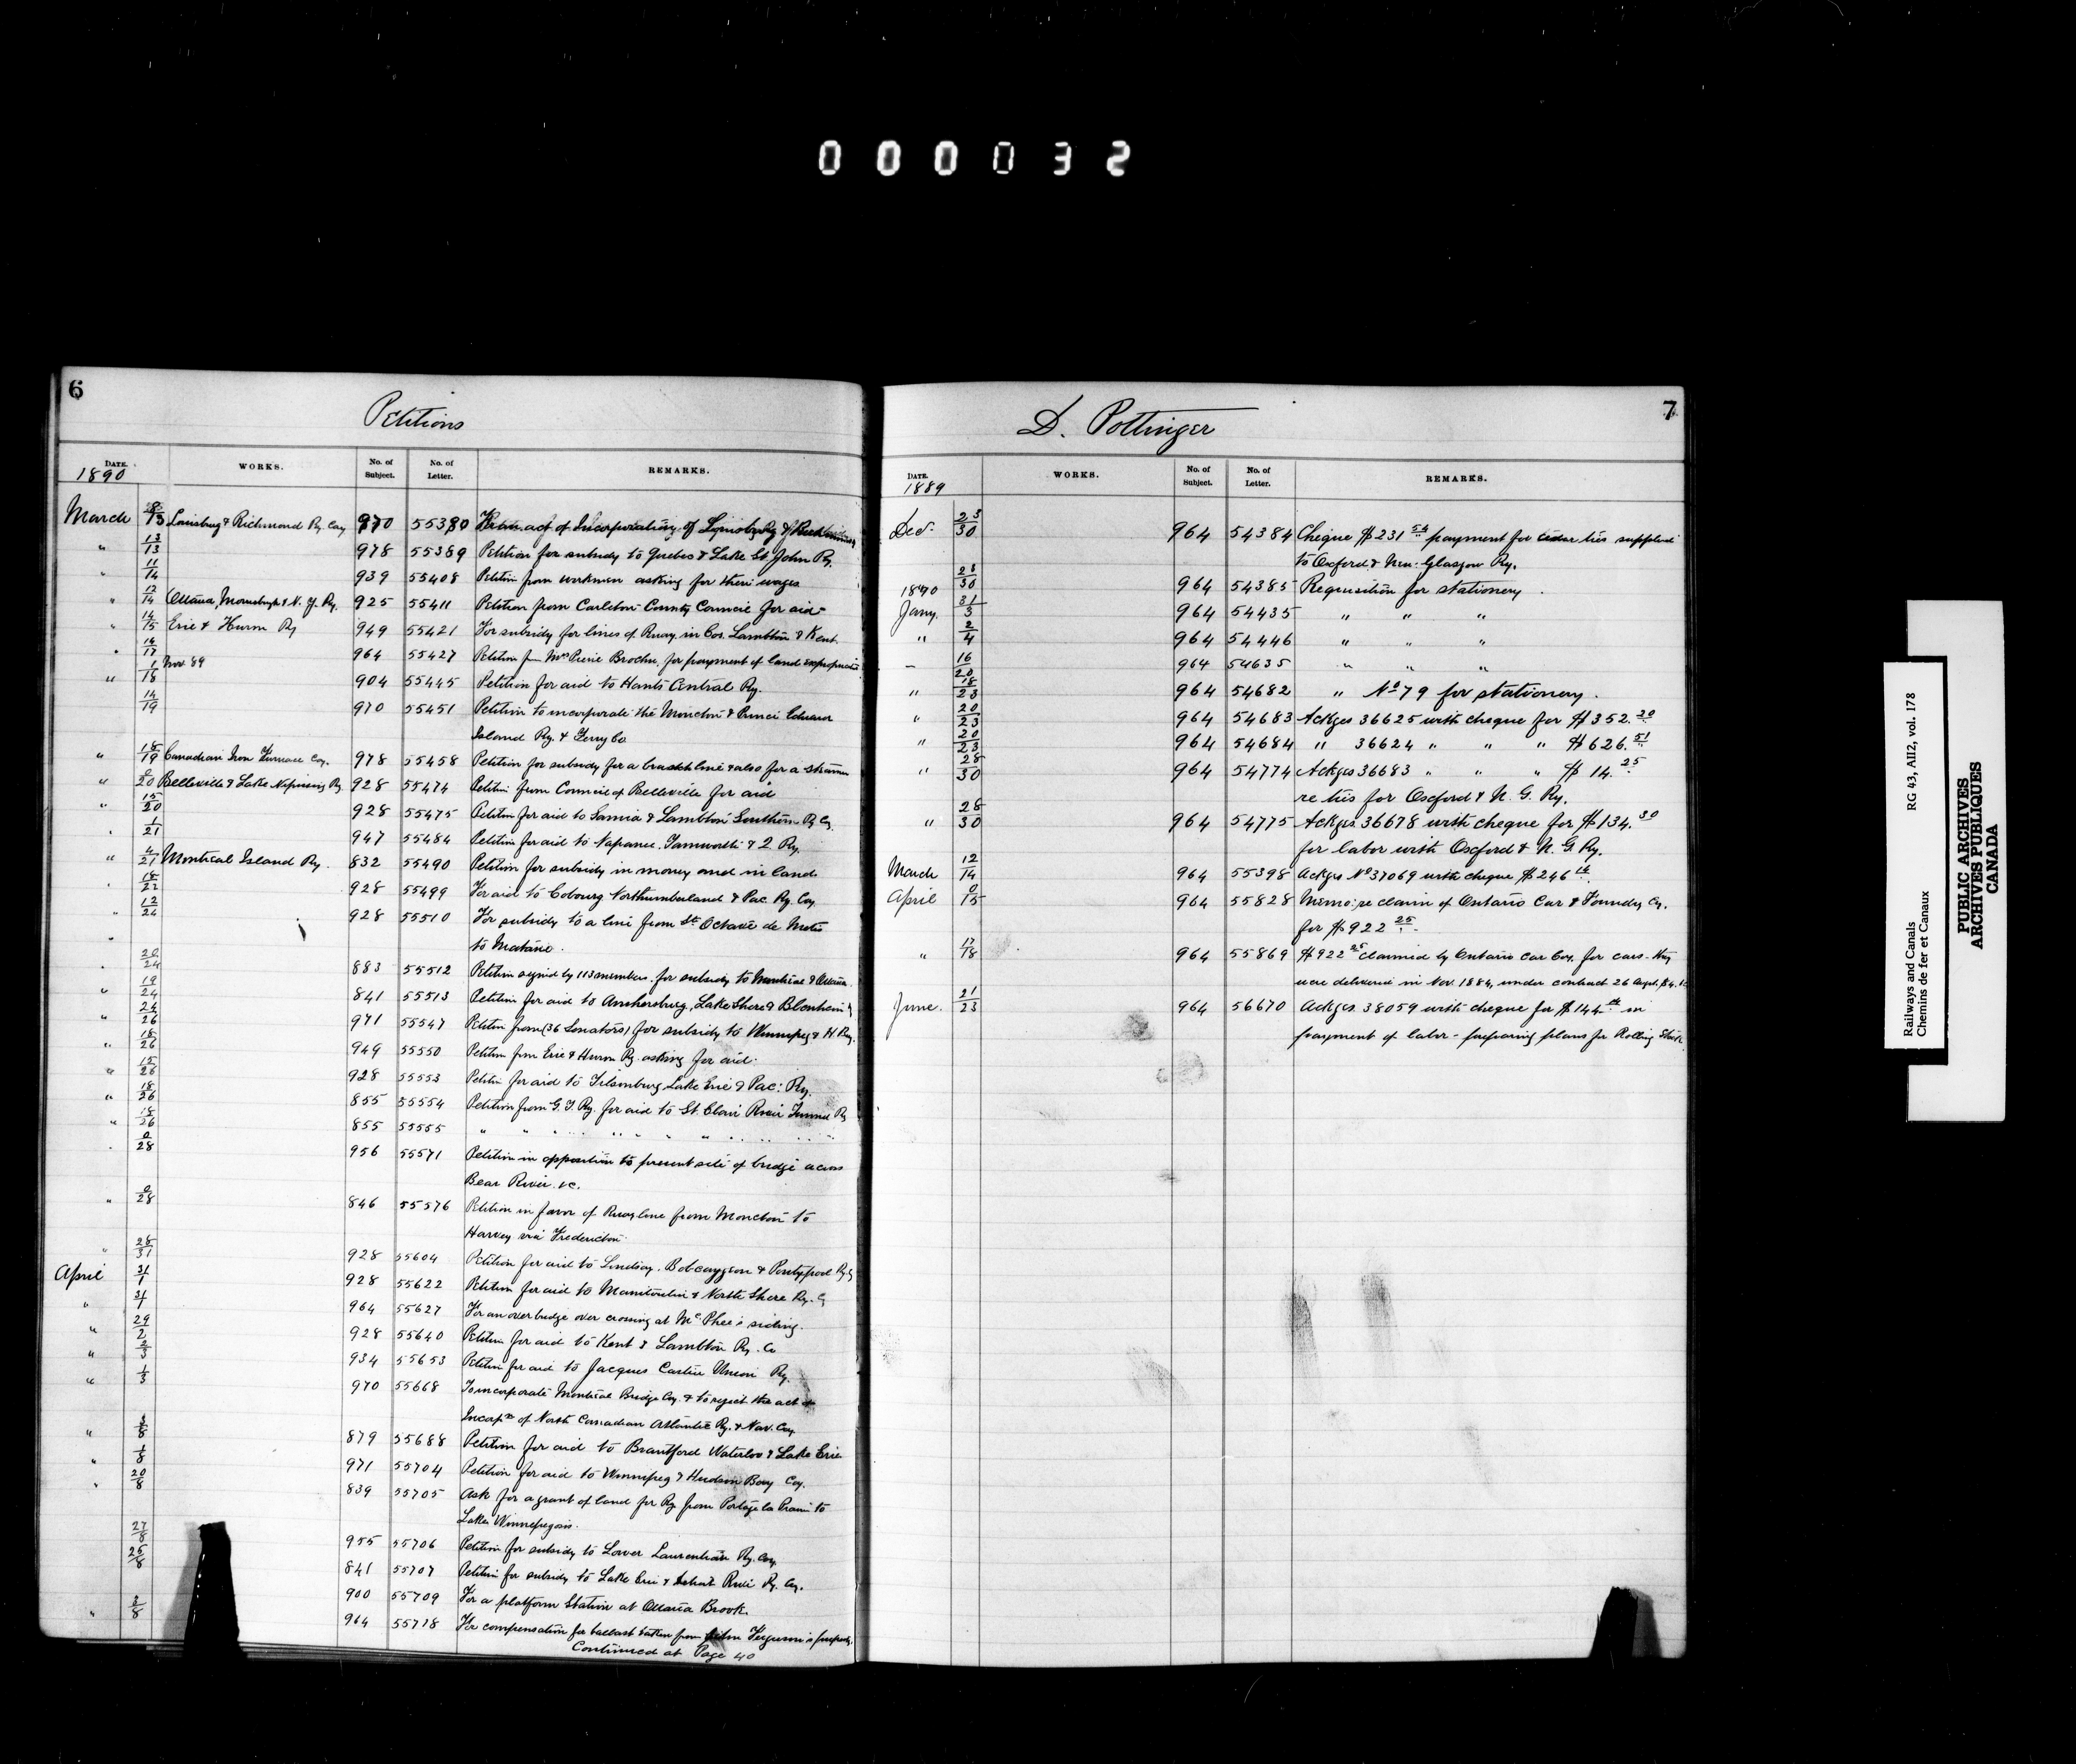 000032
6
Petitions
DATE. WORKS. No. of Subject. No. of Letter. REMARKS.
1890
March 13 Louisburg & Richmond Ry Coy 970 55380 act of Incorporation of
" 13/13 978 55389 Petition for subsidy to Quebec & Lake St John Ry.
" 11/14 939 55408 Petition from workmen asking for their wages
" 12/14 Ottawa, Morrisburgh & N. Y. Ry. 925 55411 Petition from Carleton County Council for aid
" 14/15 Erie & Huron Ry 949 55421 For subsidy for lines of Rway. in Cos. Lambton & Kent.
" 14/17 964 55427 Petition from Mrs Pierre Brochu, for payment of land expropriated
" 1/18 Nov. 89 904 55445 Petition for aid to Hants Central Ry.
14/19 970 55451 Petition to incorporate the Moncton & Prince Edward
Island Ry. & Ferry Co
" 18/19 Canadian Iron Furnace Coy. 978 55458 Petition for subsidy for a branch line & also for a steamer
" 0/20 Belleville & Lake Nipissing Ry. 928 55474 Petition from Council of Belleville for aid
" 15/20 928 55475 Petition for aid to Sarnia & Lambton Southern Ry Cy.
" 1/21 947 55484 Petition for aid to Napanee, Tamworth & Q. Ry.
" 4/21 Montreal Island Ry. 832 55490 Petition for subsidy in money and in land
" 18/22 928 55499 For aid to Cobourg Northumberland & Pac. Ry. Coy.
" 12/24 928 55510 For subsidy to a line from St. Octave de Metis
to Matane.
" 20/24 883 55512 Petition signed by 113 members for subsidy to Montreal & Ottawa.
" 19/24 841 55513 Petition for aid to Amhersburg, Lake Shore & Blenheim Ry
" 24/26 971 55547 Petition from (36 Senators) for subsidy to Winnipeg & H. Ry.
" 18/26 949 55550 Petition from Erie & Huron Ry. asking for aid.
" 15/26 928 55553 Petition for aid to Tilsonburg Lake Erie & Pac: Ry.
" 18/26 855 55554 Petition from G. T. Ry. for aid to St. Clair River Tunnel Ry
" 18/26 855 55555 " " " " " " "
" 0/28 956 55571 Petition in opposition to present site of bridge across
Bear River. &c.
" 0/28 846 55576 Petition in favor of Rway. line from Moncton to
Harvey via Fredericton.
" 28/31 928 55604 Petition for aid to Lindsay, Bobcaygeon & Pontypool Ry Cy
April 31/1 928 55622 Petition for aid to Manitoulin & North Shore Ry. Cy
" 31/1 964 55627 For an overbridge over crossing at McPhee's siding.
" 29/2 928 55640 Petition for aid to Kent & Lambton Ry. Co
" 2/3 934 55653 Petition for aid to Jacques Cartier Union Ry.
" 1/3 970 55668 To incorporate Montreal Bridge Coy. & to reject the act of
Incorpn of North Canadian Atlantic Ry. & Nav. Coy.
" 8 879 55688 Petition for aid to Brantford Waterloo & Lake Erie
" 1/8 971 55704 Petition for aid to Winnipeg & Hudson Bay Coy.
" 20/8 839 55705 Ask for a grant of land for Ry from Portage la Prairie to
Lake Winnepegosis.
27/8 955 55706 Petition for subsidy to Lower Laurentian Ry. Coy.
25/8 841 55707 Petition for subsidy to Lake Erie & Detroit River Ry. Cy.
900 55709 For a platform Station at Ottawa Brook.
" 3/8 964 55718 For compensation for ballast taken from John Ferguson's property.
Continued at Page 40
7
D. Pottinger
DATE. WORKS. No. of Subject. No. of Letter. REMARKS.
1889
Decr. 23/30 964 54384 Cheque $231.54 payment for cedar ties supplied
to Oxford & New Glasgow Ry.
23/30 964 54385 Requisition for stationery.
1890
Jany. 31/3 964 54435 " " "
" 2/4 964 54446 " " "
" 16/20 964 54635 " " "
" 18/23 964 54682 " No 79 for stationery.
" 20/23 964 54683 Ackges 36625 with cheque for $352.20
" 20/23 964 54684 " 36624 " " " $626.51
" 28/30 964 54774 Ackges 36683 " " " $14.25
re ties for Oxford & N. G. Ry.
" 28/30 964 54775 Ackges 36678 with cheque for $134.30
for labor with Oxford & N. G. Ry.
March 12/14 964 55398 Ackges No 37069 with cheque $246
April 0/15 964 55828 Memo: re claim of Ontario Car & Foundry Cy.
for $922.25
" 17/18 964 55869 $922.25 claimed by Ontario Car Coy. for cars they
were delivered in Nov. 1884, under contract 26 Augt.
June. 21/23 964 56670 Ackges. 38059 with cheque for $144 in
payment of labor - preparing plans for Rolling Stock
Railways and Canals RG 43, AII2, vol. 178
Chemins de fer et Canaux
PUBLIC ARCHIVES
ARCHIVES PUBLIQUES
CANADA